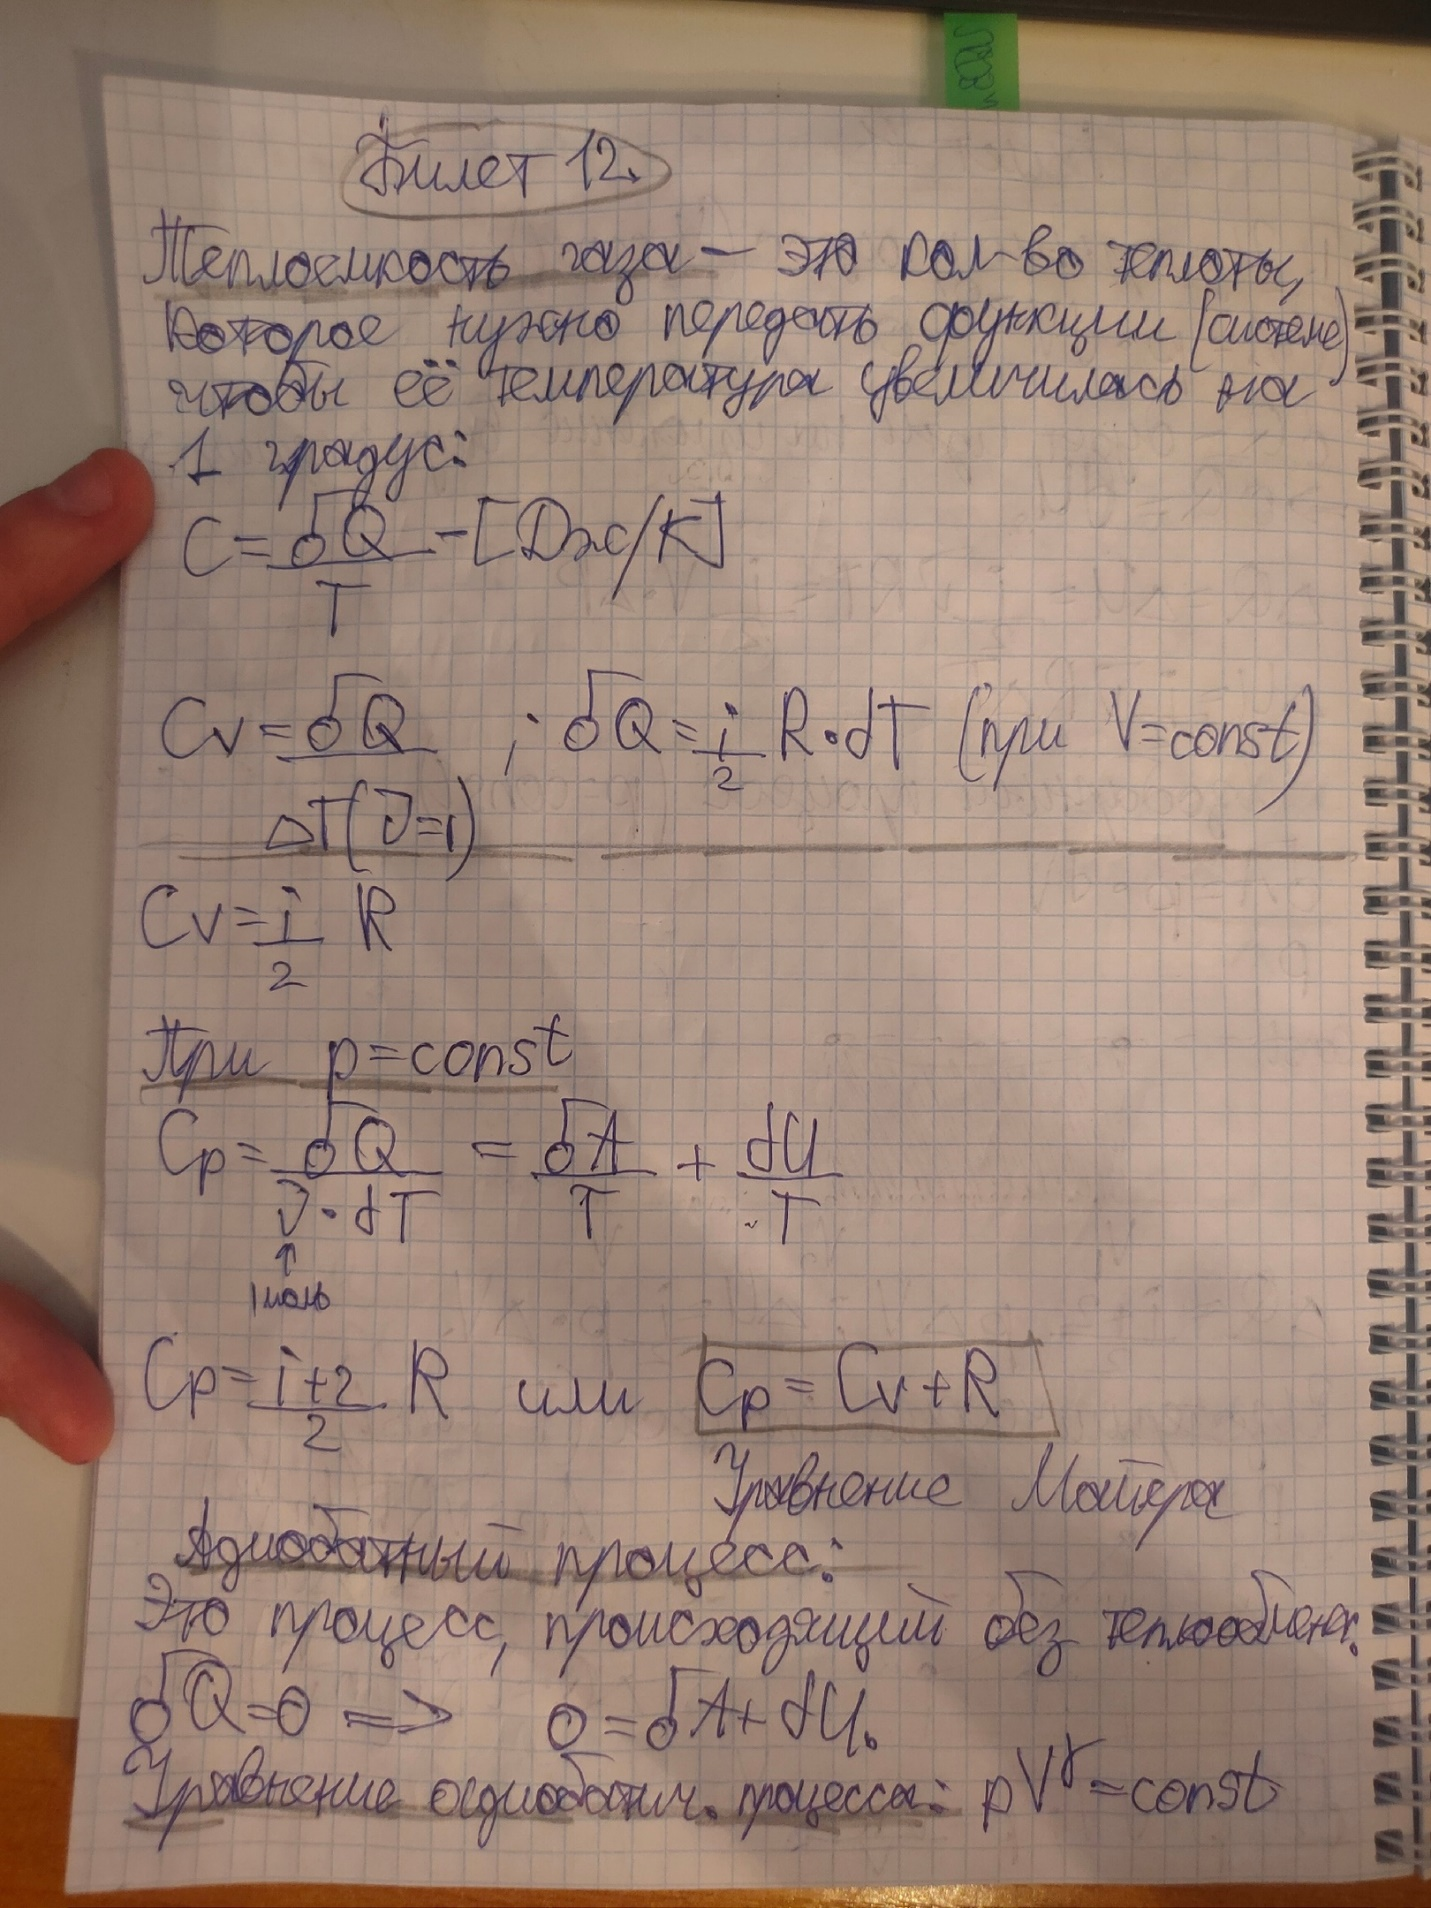 Билет 12.
Теплоемкость газа — это кол-во теплоты,
которое нужно передать функции (системе)
чтобы её температура увеличилась на
1 градус:
C = δQ/T - [Дж/К]
Cv = δQ/ΔT (ν=1) ; δQ = i/2 R·dT (при V=const)
Cv = i/2 R
При p=const
Cp = δQ/ν·dT = δA/T + dU/T
1 моль
Cp = i+2/2 R или Cp = Cv+R
Уравнение Майера
Адиабатный процесс:
Это процесс, происходящий без теплообмена.
δQ=0 => 0=δA+dU.
Уравнение адиабатич. процесса: pV^γ=const